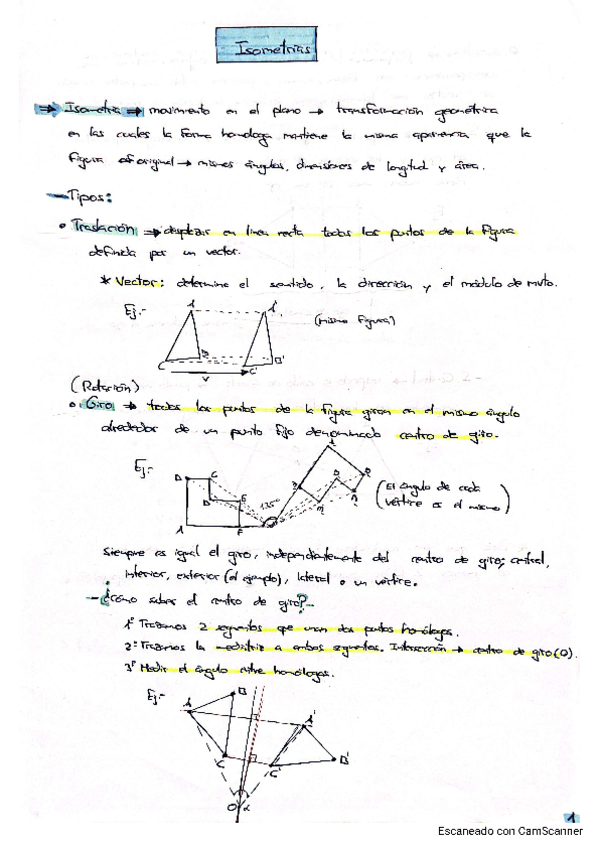 Isometrías
⇒ Isometría ⇒ movimiento en el plano → transformación geométrica
en las cuales la forma homóloga mantiene la misma apariencia que la
figura original → mismos ángulos, dimensiones de longitud y área.
- Tipos:
• Traslación → desplazar en línea recta todos los puntos de la figura
definida por un vector.
* Vector: determina el sentido, la dirección y el módulo de mvto.
Ej.-
A A'
(misma figura)
B B'
C C'
V
(Rotación)
• Giro → todos los puntos de la figura giran en el mismo ángulo
alrededor de un punto fijo denominado centro de giro.
Ej.-
D C
E
135°
A F
(El ángulo de cada
vértice es el mismo)
Siempre es igual el giro, independientemente del centro de giro; central,
interior, exterior (el ejemplo), lateral o un vértice.
- ¿Cómo saber el centro de giro?
1º Trazamos 2 segmentos que unan dos puntos homólogos.
2º Trazamos la mediatriz a ambos segmentos. Intersección → centro de giro (O).
3º Medir el ángulo entre homólogos.
Ej.-
B
A A'
C C' B'
O α
1
Escaneado con CamScanner